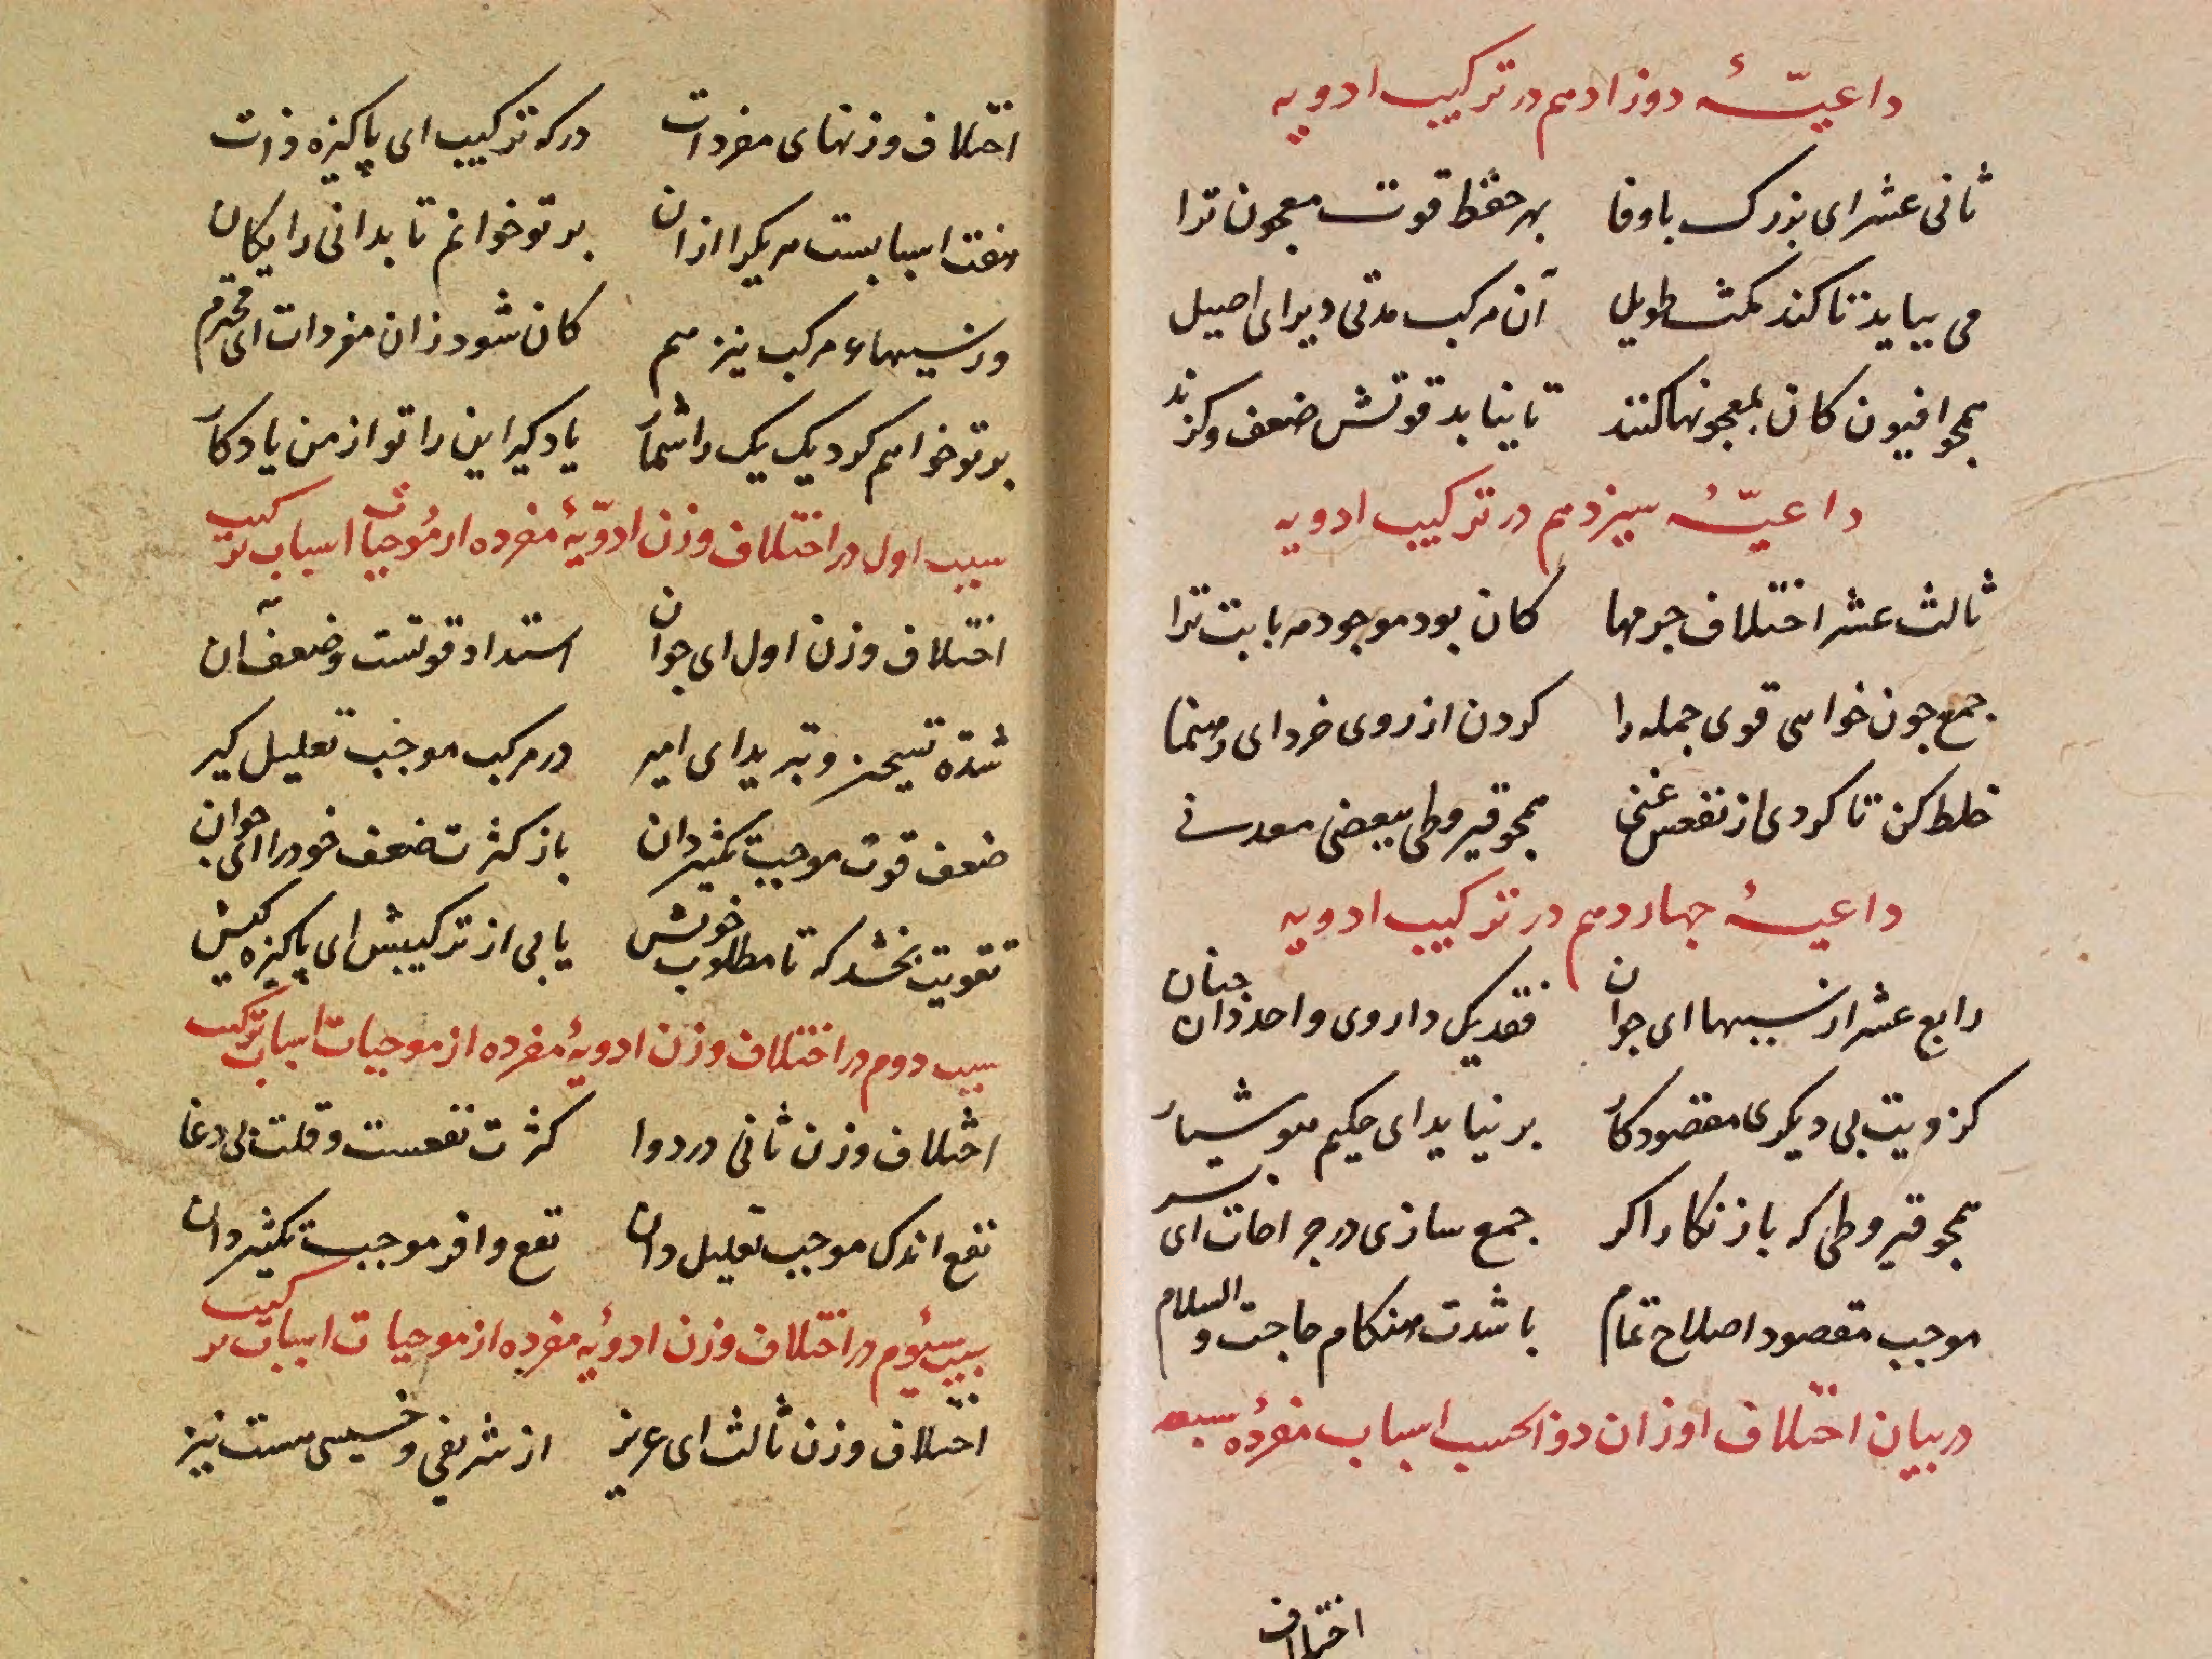 داعیّهٔ دوازدهم در ترکیب ادویه
ثانی عشر ای بزرک باوفا بهر حفظ قوت معجون ترا
می بیاید تا کند مکث طویل آن مرکب مدتی دیر ای اصیل
همچو افیون کان بمعجونها کنند تا نیابد قوتش ضعف و کزند
داعیّهٔ سیزدهم در ترکیب ادویه
ثالث عشر اختلاف جرمها کان بود موجود مه بابت ترا
جمع جون خواهی قوی جمله را کردن از روی خرد ای رهنما
خلط کن تا کردی از نفعس غنی همچو قیروطی ببعضی معدنی
داعیهٔ جهاردهم در ترکیب ادویه
رابع عشر از سببها ای جوان فقد یک داروی واحد دان جنان
کز ویت بی دیکری مقصود کار بر نیاید ای حکیم هوشیار
همچو قیروطی که با زنکار اکر جمع سازی در جراحات ای بسر
موجب مقصود اصلاح تمام باشدت هنکام حاجت والسلام
در بیان اختلاف اوزان دوا بحسب اسباب مفردهٔ سبعه
اختلاف
اختلاف وزنهای مفردات در که ترکیب ای پاکیزه ذات
هفت اسبابست هریکرا ازان بر تو خوانم تا بدانی رایکان
وز سببهاء مرکب نیز هم کان شود زان مفردات ای محترم
بر تو خواهم کرد یک یک را شمار یاد کیر این را تو از من یادکار
سبب اول در اختلاف وزن ادویّهٔ مفرده از موجبات اسباب ترکیب
اختلاف وزن اول ای جوان استداد قوتست و ضعف آن
شدّه تسخین و تبرید ای امیر در مرکب موجب تعلیل کیر
ضعف قوت موجب تکثیر دان باز کثرت ضعف خود را ای جوان
تقویت بخشد که تا مطلوب خویش یابی از ترکیبش ای پاکیزه کیش
سبب دوم در اختلاف وزن ادویهٔ مفرده از موجبات اسباب ترکیب
اختلاف وزن ثانی در دوا کثرت نفعست و قلت بی دغا
نفع اندک موجب تعلیل دان نفع وافر موجب تکثیر دان
سبب سیُوم در اختلاف وزن ادویهٔ مفرده از موجبات اسباب ترکیب
اختلاف وزن ثالث ای عزیز از شریفی و خسیسی هست نیز